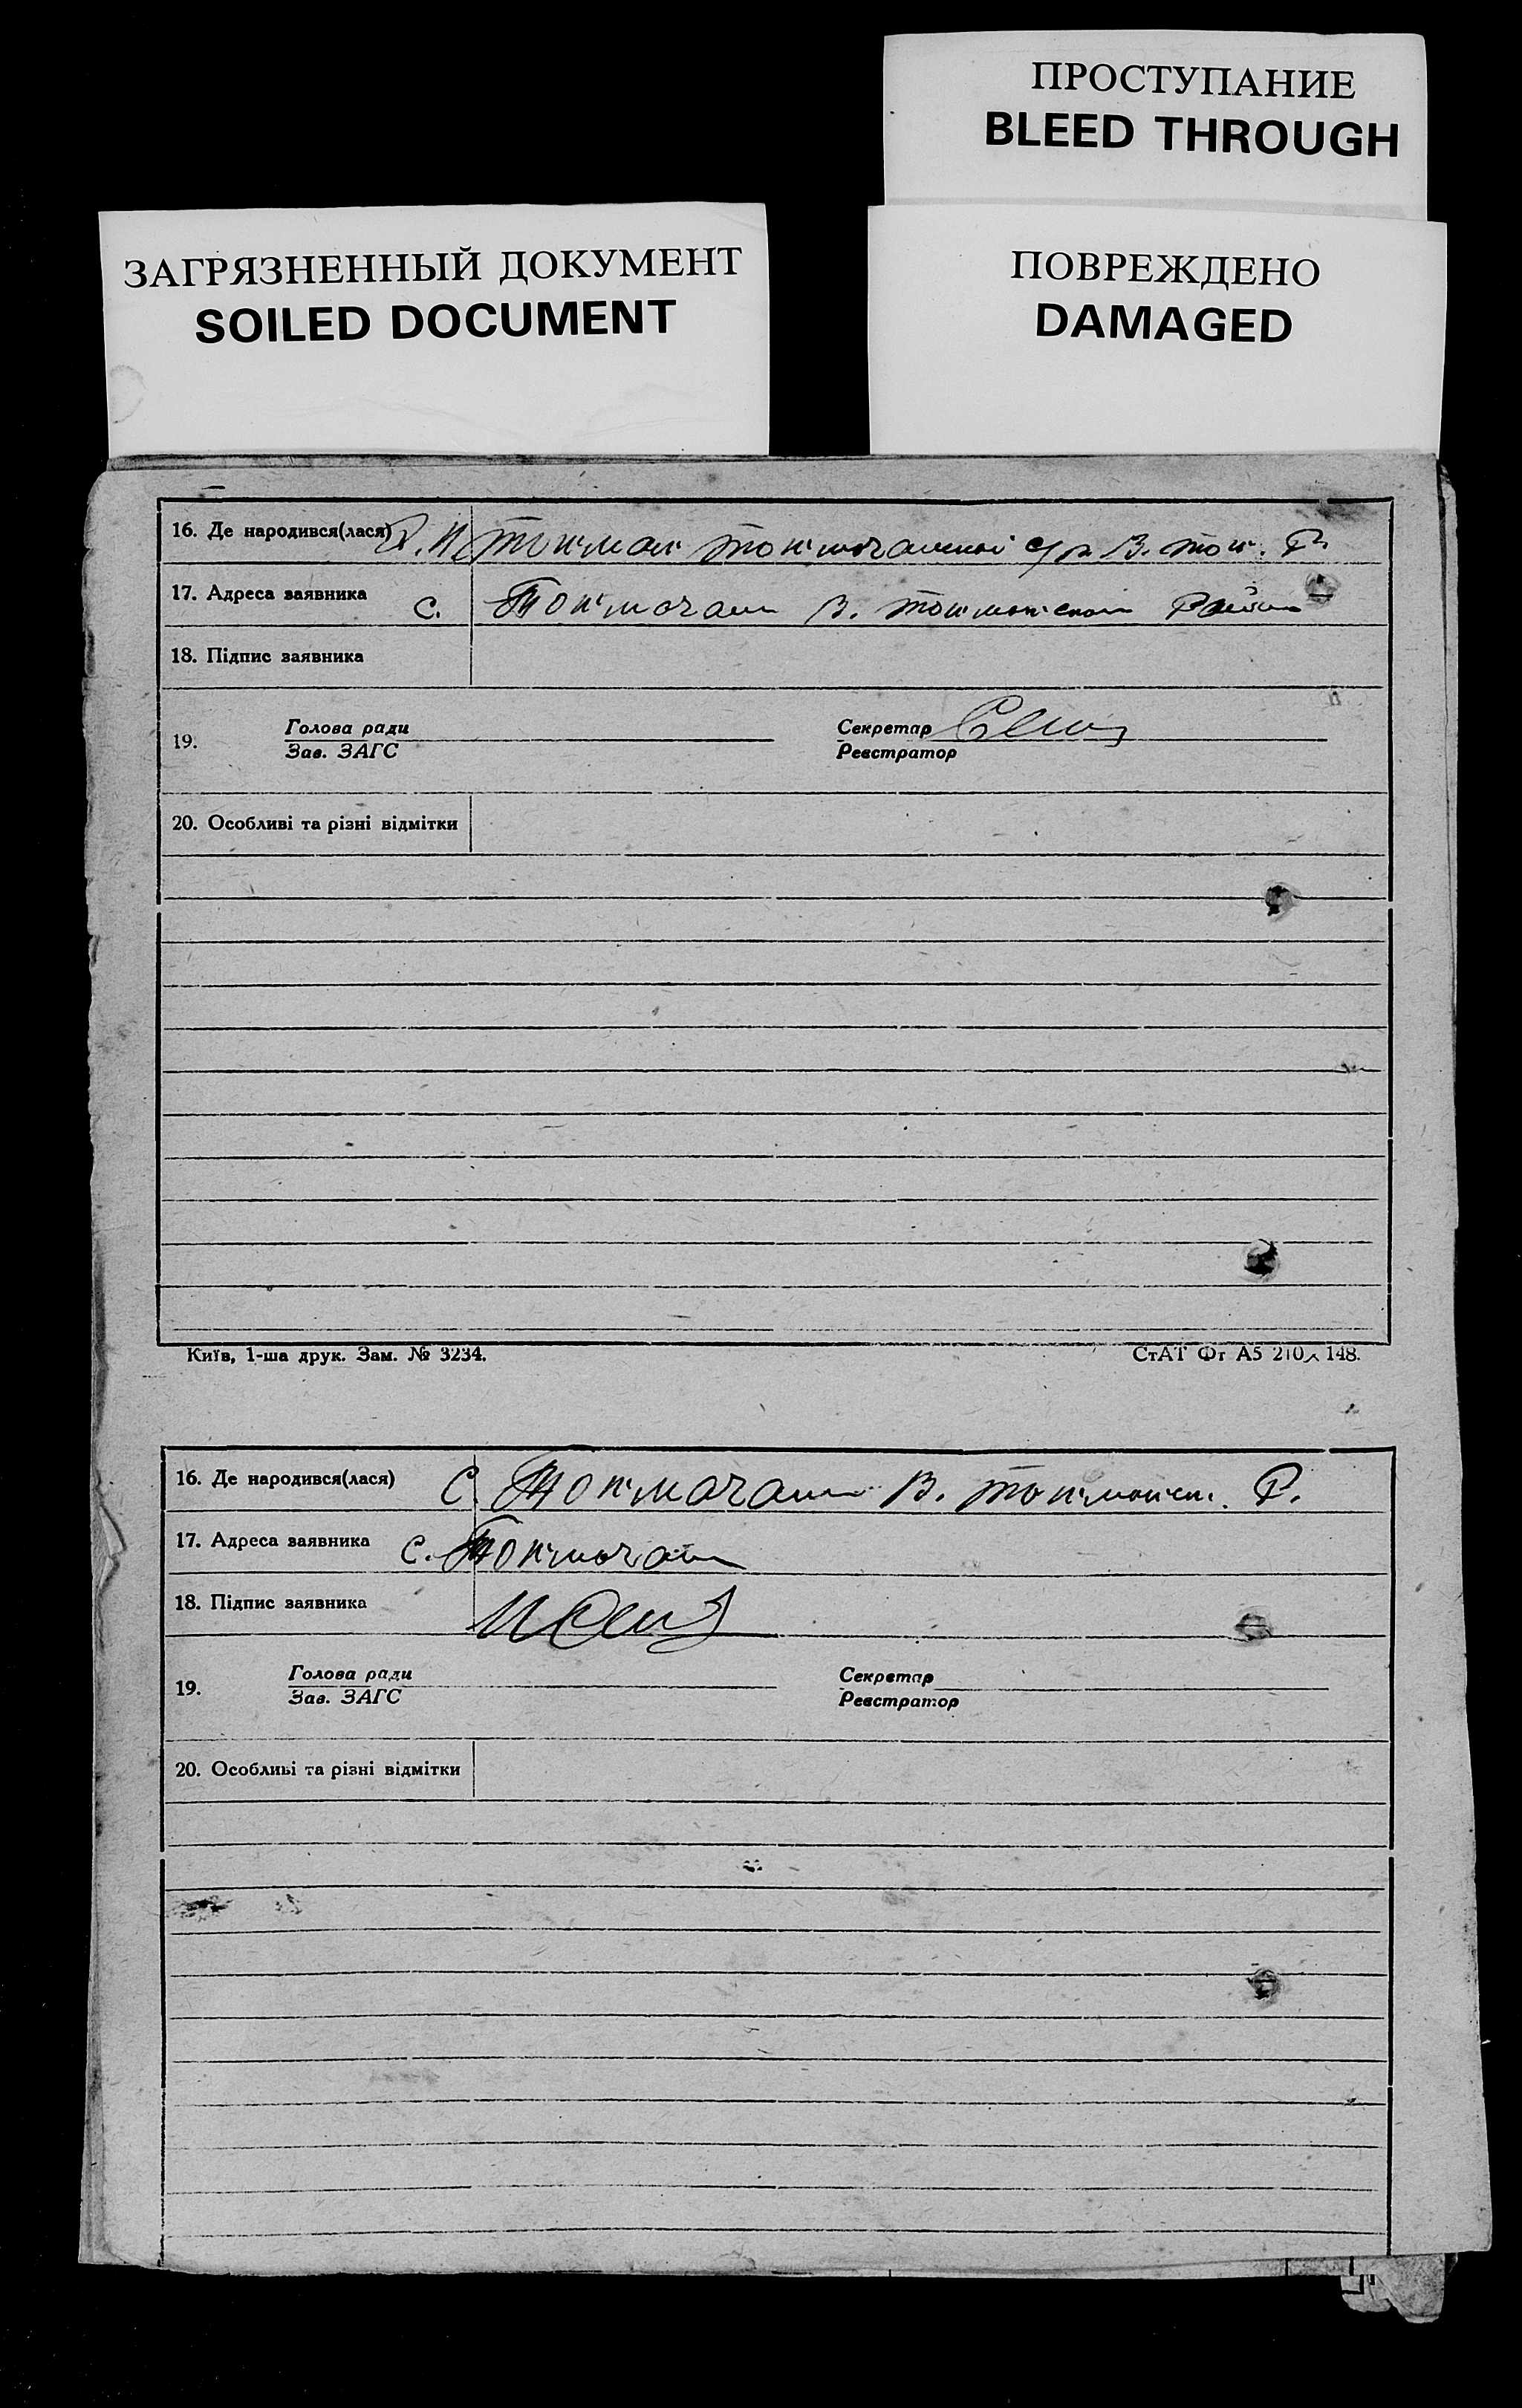 ПРОСТУПАНИЕ
BLEED THROUGH
ЗАГРЯЗНЕННЫЙ ДОКУМЕНТ
SOILED DOCUMENT
ПОВРЕЖДЕНО
DAMAGED
16. Де народився(лася) Токмак с/р В. Ток. Р.
17. Адреса заявника с. Токмачан В. Токмакском
18. Підпис заявника
19. Голова ради Секретар
Зав. ЗАГС Реєстратор
20. Особливі та різні відмітки
Київ, 1-ша друк. Зам. № 3234. СтАТ Фт А5 210×148.
16. Де народився(лася) С. Токмачан В. Токмакск. Р.
17. Адреса заявника с. Токмачан
18. Підпис заявника
19. Голова ради Секретар
Зав. ЗАГС Реєстратор
20. Особливі та різні відмітки